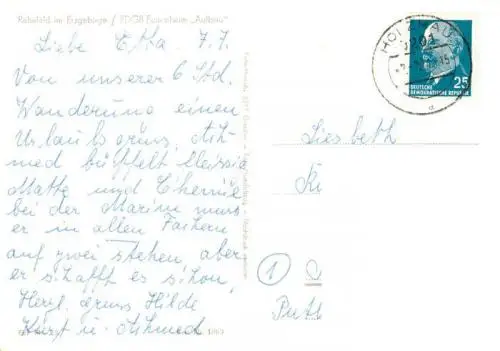 Rehefeld im Erzgebirge / FDGB Erholsheim „Aufbau"
Liebe 7.7.
Von unserer 6 Std.
Wanderung einen
Urlaubsgruss, Ach-
med büffelt fleissig
Matte und Chemie
bei der Marine muss
er in allen Fächern
auf zwei stehen aber
er schafft es schon,
Herzl. Gruss Hilde
Kurt u. Achmed
HOLZHAU
25
DEUTSCHE
DEMOKRATISCHE REPUBLIK
Liesbeth
Kr
1
Putt